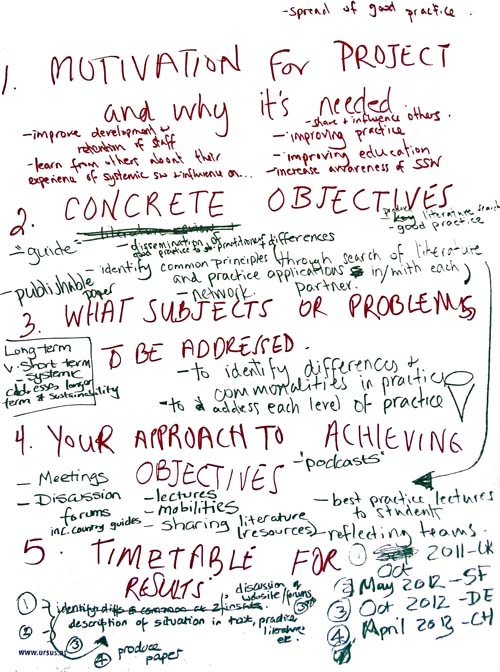 - spread of good practice.
1. MOTIVATION for PROJECT
and why it's needed
- share + influence others.
- improve development
retention of staff
- improving practice
- learn from others about their
experience of systemic SW + influence on...
- improving education
- increase awareness of SSW
2. CONCRETE OBJECTIVES
literature search
- good practice
- "guide"
- dissemination of differences
good practice to practitioners
- identify common principles (through search of literature
and practice applications in/with each
partner.
- publishable
paper
- network
3. WHAT SUBJECTS OR PROBLEMS
TO BE ADDRESSED.
Long-term
v. Short term
- systemic
addresses longer
term & sustainability
- to identify differences &
commonalities in practice
- to address each level of practice
4. YOUR APPROACH TO ACHIEVING
OBJECTIVES
- "podcasts"
- Meetings
- Discussion
forums
inc. country guides
- lectures
- mobilities
- sharing literature
(resources)
- best practice lectures
to students
- reflecting teams.
5. TIMETABLE FOR
RESULTS
① Oct 2011-UK
② May 2012-SF
③ Oct 2012-DE
④ April 2013-CH
① - identify diffs & common at
discussion of
website/forums
② - description of situation in text, practice
literature
etc.
③
④ produce
paper
www.ursus.